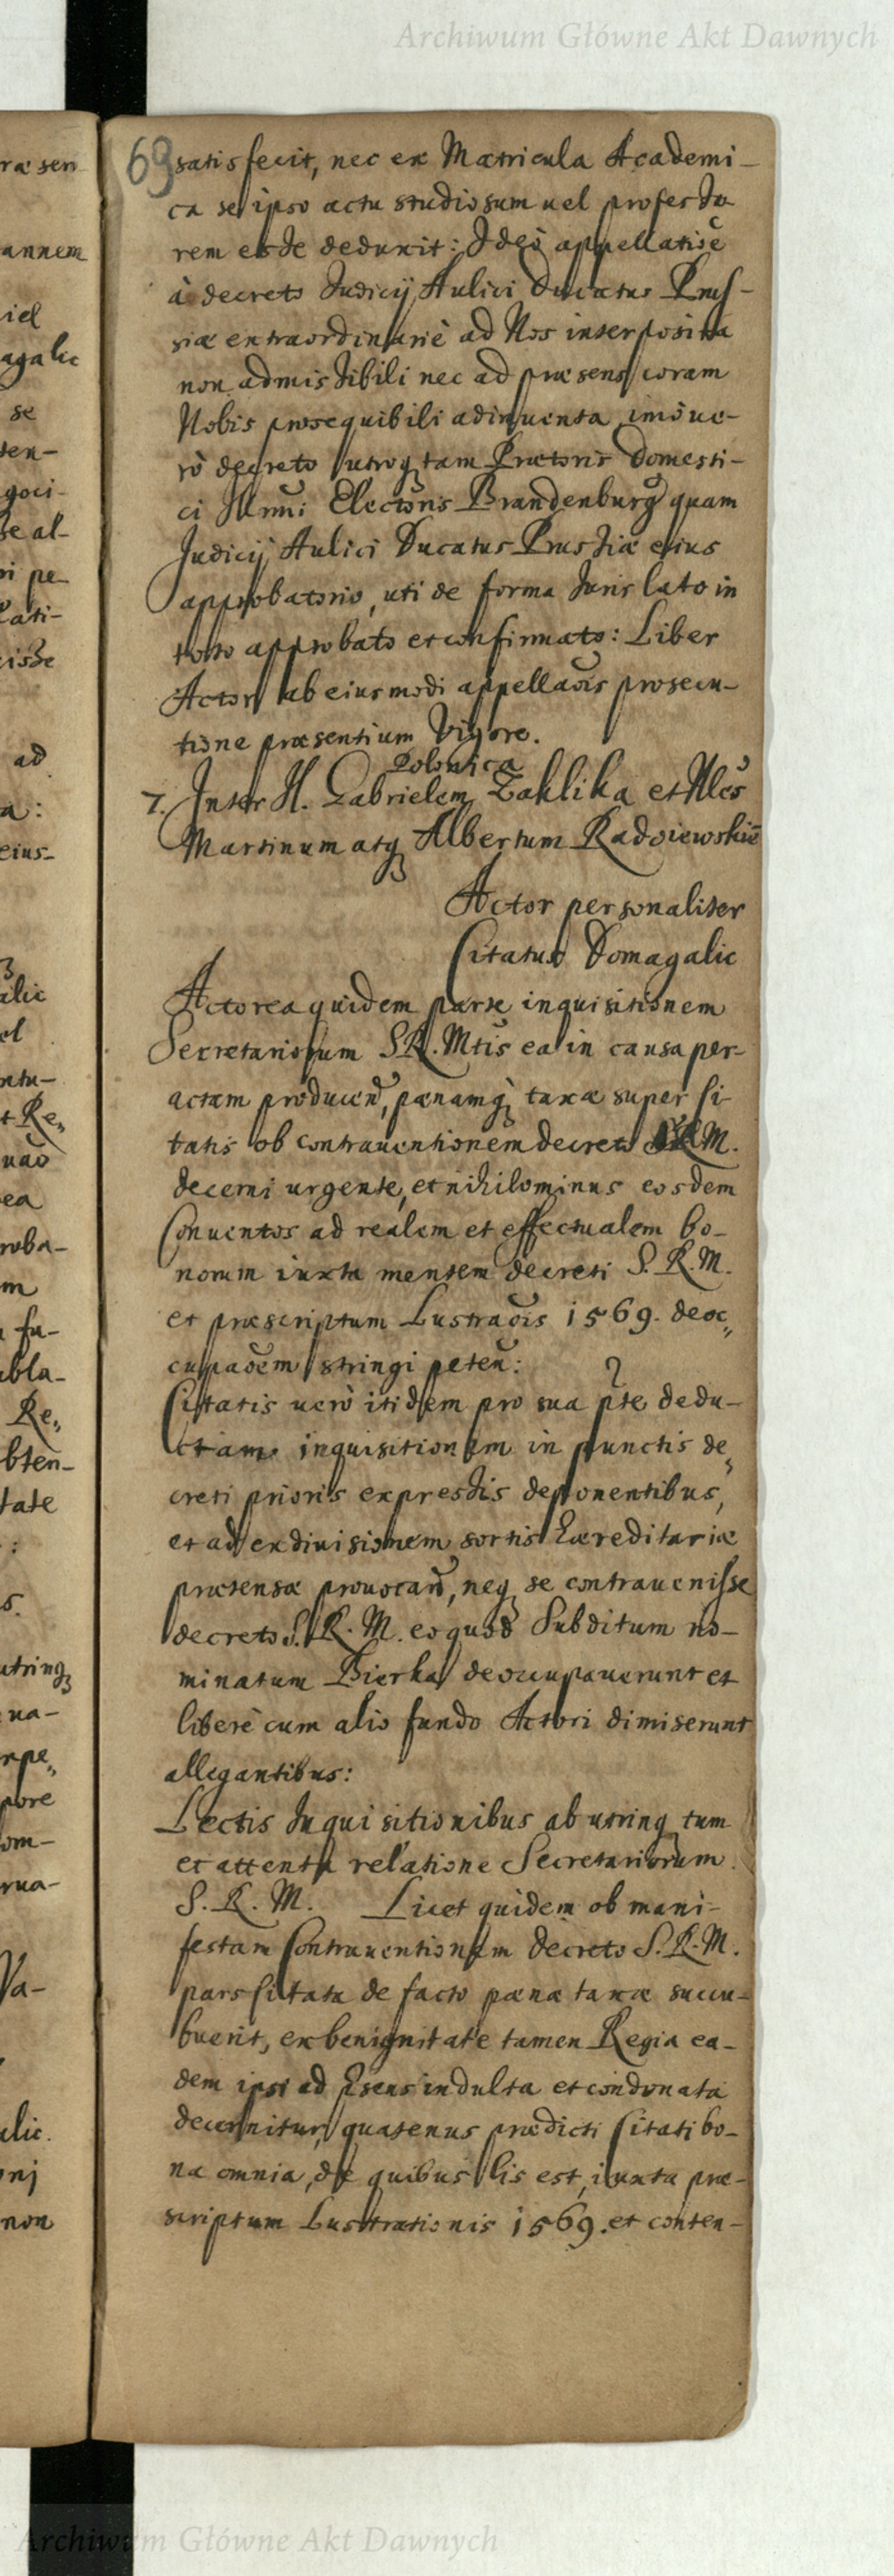 Archiwum Główne Akt Dawnych
69
satisfecit, nec ex Matricula Academi-
ca se ipso actu studiosum uel professo
rem esse deduxit: Ideò appellatiõe
à decreto Judicij Aulici Ducatus Prus-
siæ extraordinariè ad Nos interposita
non admissibili nec ad præsens coram
Nobis prosequibili adinuenta imò ue-
rò decreto utroq; tam Prætoris Domesti-
ci Illmi: Electoris Brandenburg quam
Judicij Aulici Ducatus Prussiæ eius
approbatorio, uti de forma Juris lato in
toto approbato et confirmato: Liber
Actor ab eiusmodi appellaõis prosecu-
tione præsentium Vigore.
Polonica
7. Inter N. Gabrielem Zaklika et Nles
Martinum atq; Albertum Radoiewskie
Actor personaliter
Citatus Domagalic
Actorea quidem parte inquisitionem
Secretariorum S.R.Mtis ea in causa per-
actam producen, pænamq; taxæ super Ci-
tatis ob contrauentionem decreto S.R.M.
decerni urgente, et nihilominus eosdem
Conuentos ad realem et effectualem bo-
norum iuxta mentem decreti S.R.M.
et præscriptum Lustraõis 1569. deoc,,
cupaõem stringi peten:
Citatis uerò itidem pro sua pte dedu-
ctam inquisitionem in punctis de,,
creti prioris expressis deponentibus,
et ad exdiuisionem sortis hæreditariæ
prætensæ prouocan, neq; se contrauenisse
decreto S.R.M. eo quod Subditum no-
minatum Bierka deoccupauerunt et
liberè cum alio fundo Actori dimiserunt
allegantibus:
Lectis Inquisitionibus ab utrinq; tum
et attenta relatione Secretariorum
S.R.M. Licet quidem ob mani-
festam Contrauentionem decreto S.R.M.
pars Citata de facto pæna taxæ succu-
buerit, ex benignitate tamen Regia ea-
dem ipsi ad Psens indulta et condonata
decernitur, quatenus prædicti Citati bo-
na omnia, de quibus lis est, iuxta præ-
scriptum Lustrationis 1569. et conten-
Archiwum Główne Akt Dawnych